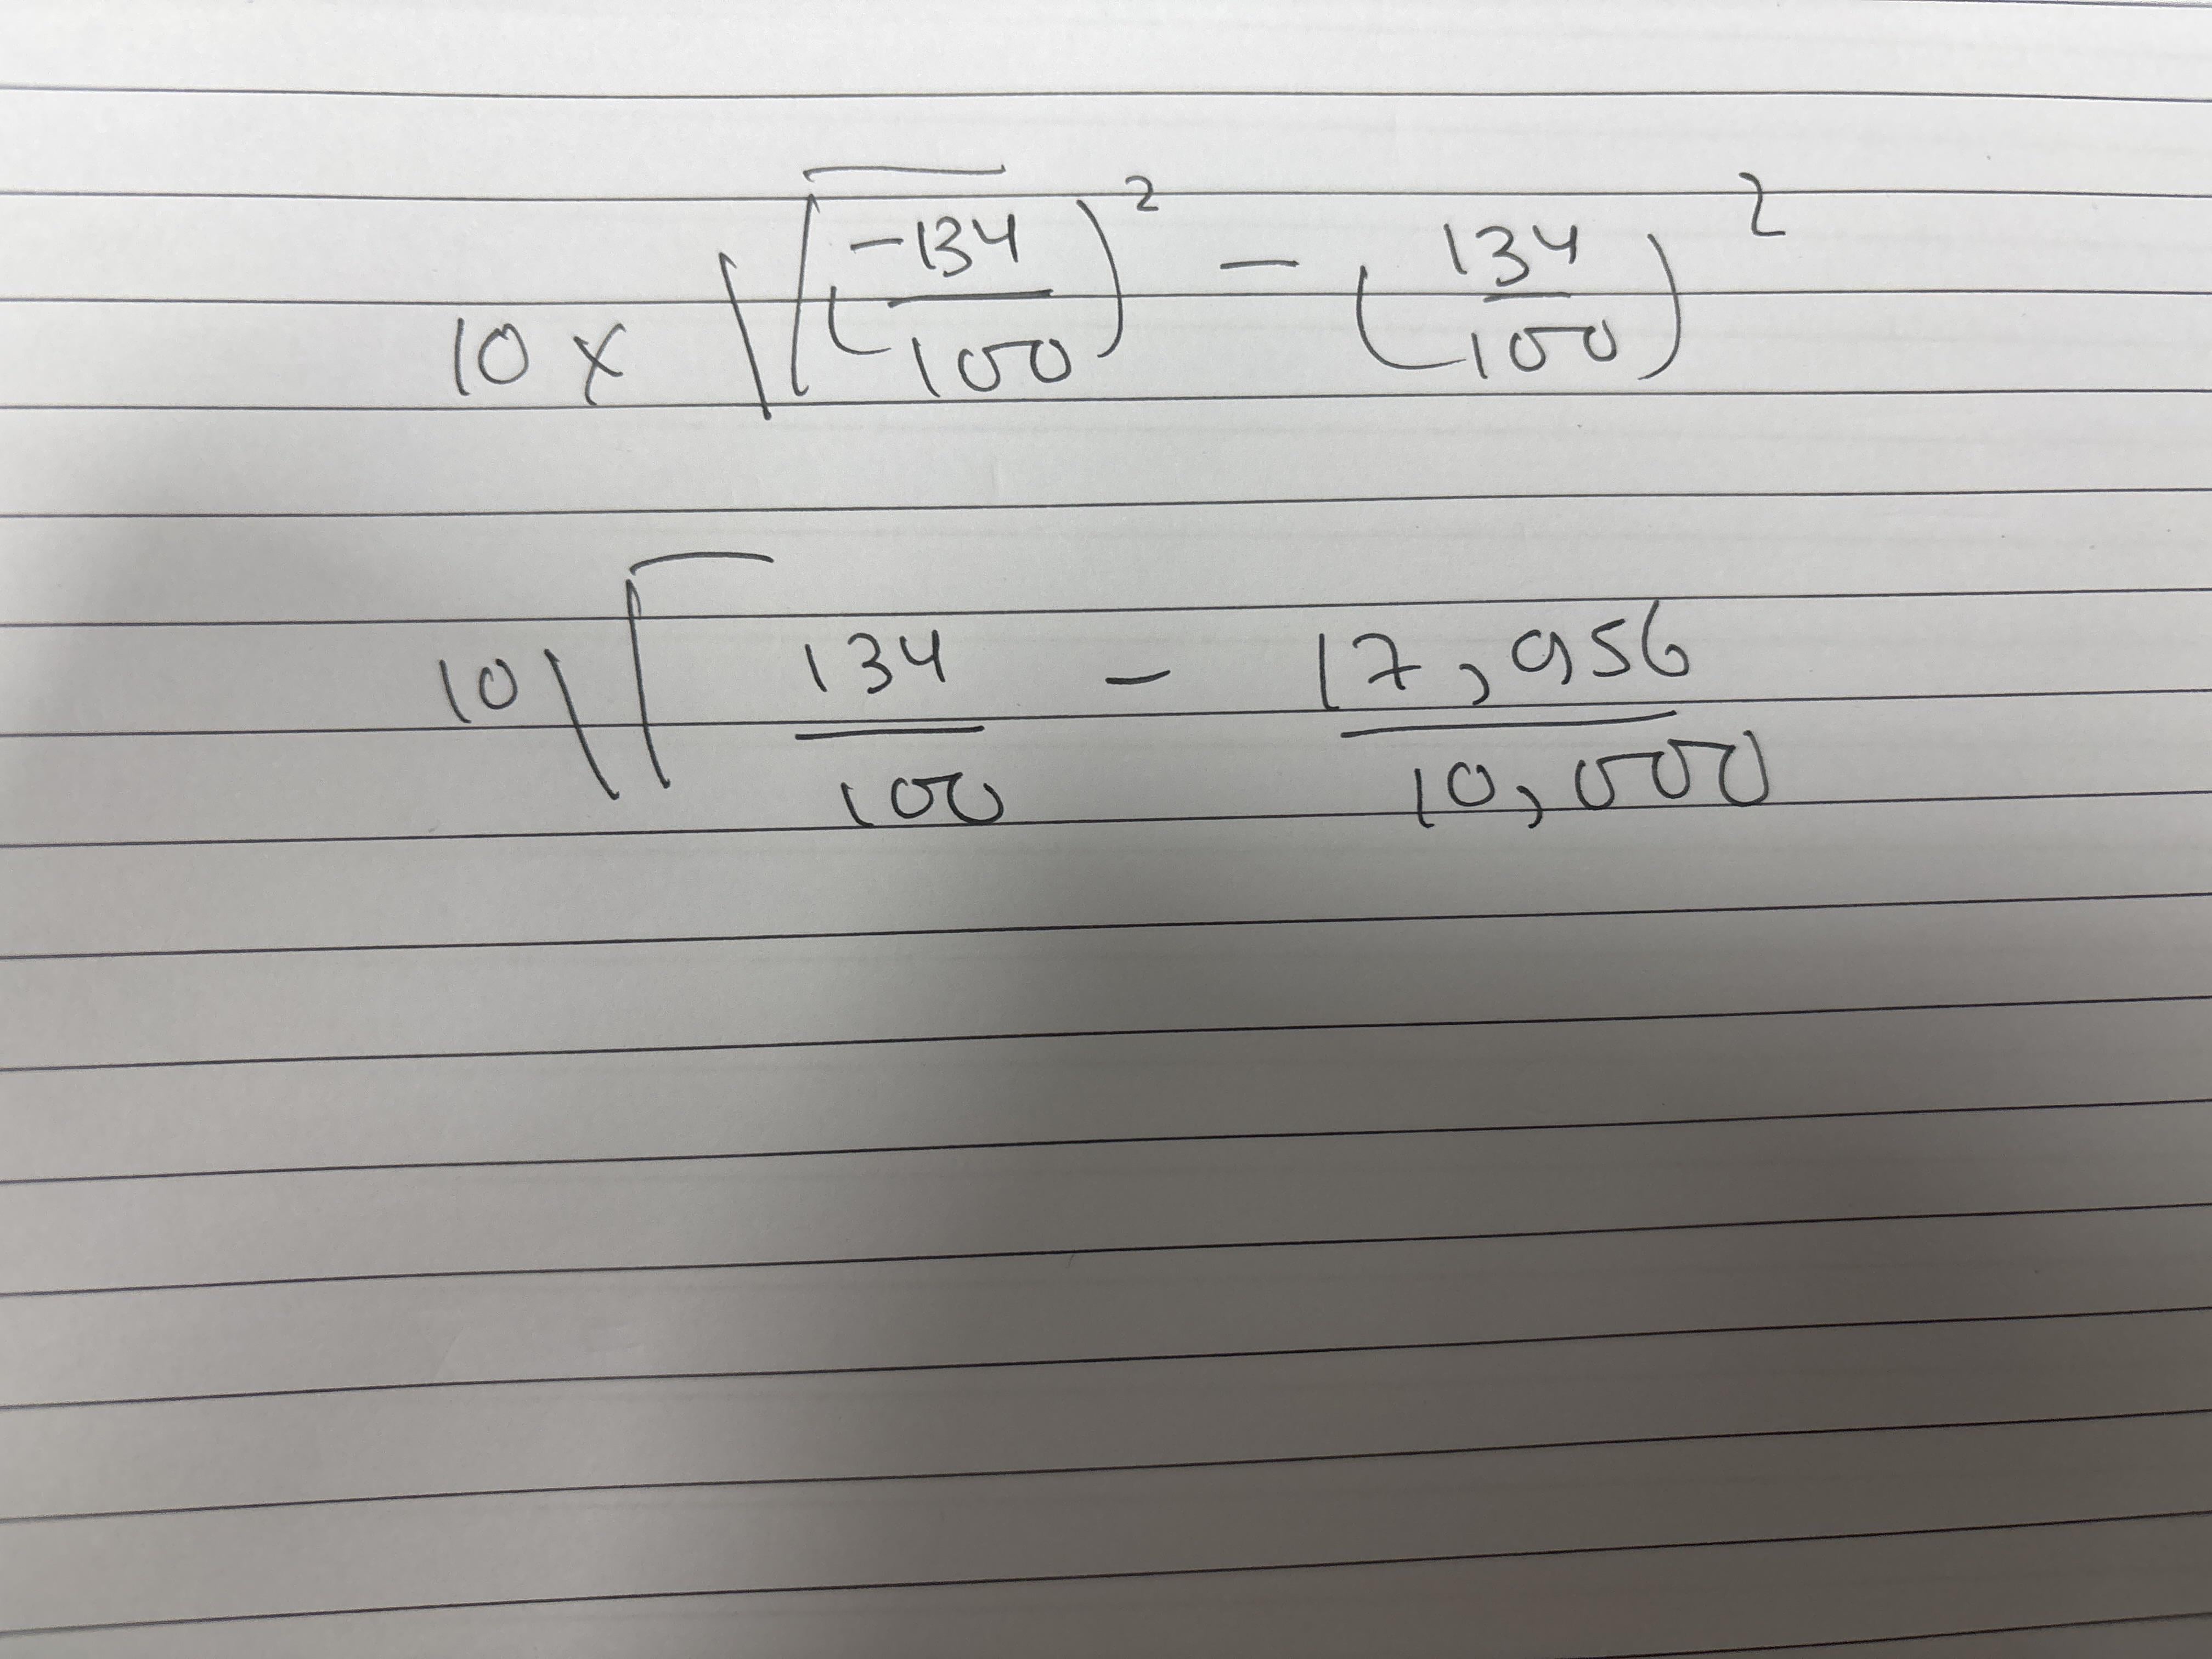 10 × √(-134/100)² - (134/100)²
10√134/100 - 17,956/10,000